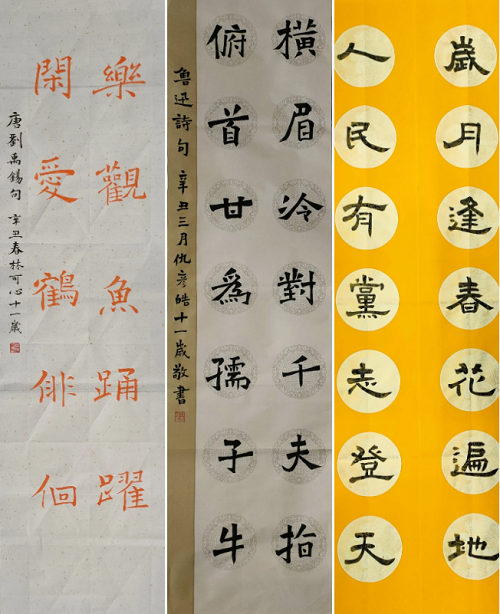 樂觀魚踊躍
閑愛鶴俳佪
唐劉禹錫句 辛丑春林可心十一歲
橫眉冷對千夫指
俯首甘爲孺子牛
魯迅詩句 辛丑三月仇彦皓十一歲敬書
歲月逢春花遍地
人民有黨志登天